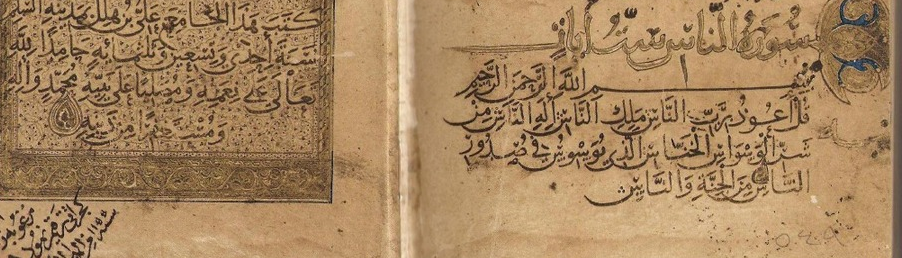 سورة الناس ست آيات
بسم الله الرحمن الرحيم
قل أعوذ برب الناس ملك الناس إله الناس من
شر الوسواس الخناس الذي يوسوس في صدور
الناس من الجنة والناس
كتب هذا الجامع علي بن هلال بمدينة السلام
سنة إحدى وتسعين وثلثمائة حامدا لله
تعالى على نعمه ومصليا على نبيه محمد وآله
ومستغفرا من ذنبه